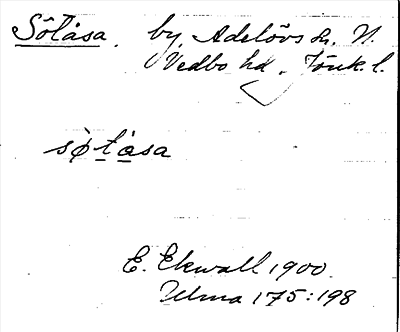 Sötåsa. by, Adelövs sn. N.
Vedbo hd. Jönk. l.
sø̀tåsa
E. Ekwall 1900.
Ulma 175:198